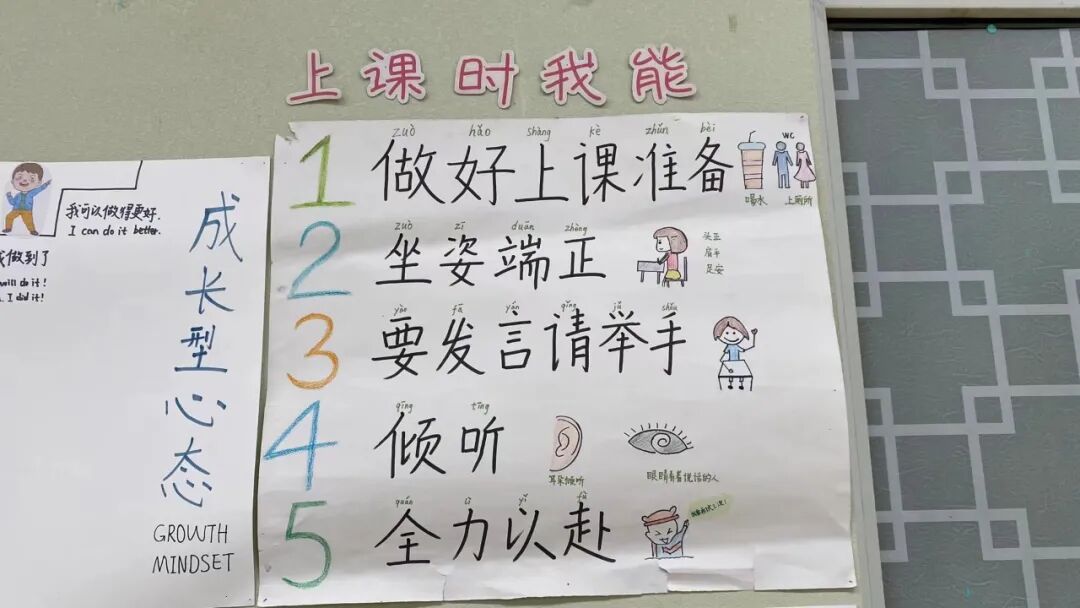 上课时我能
1 zuò hǎo shàng kè zhǔn bèi
做好上课准备
WC
喝水 上厕所
2 zuò zī duān zhèng
坐姿端正
头正
肩平
足安
3 yào fā yán qǐng jǔ shǒu
要发言请举手
4 qīng tīng
倾听
耳朵倾听
眼睛看着说话的人
5 quán lì yǐ fù
全力以赴
我可以做得更好.
I can do it better.
我做到了
will do it!
I did it!
成长型心态
GROWTH
MINDSET